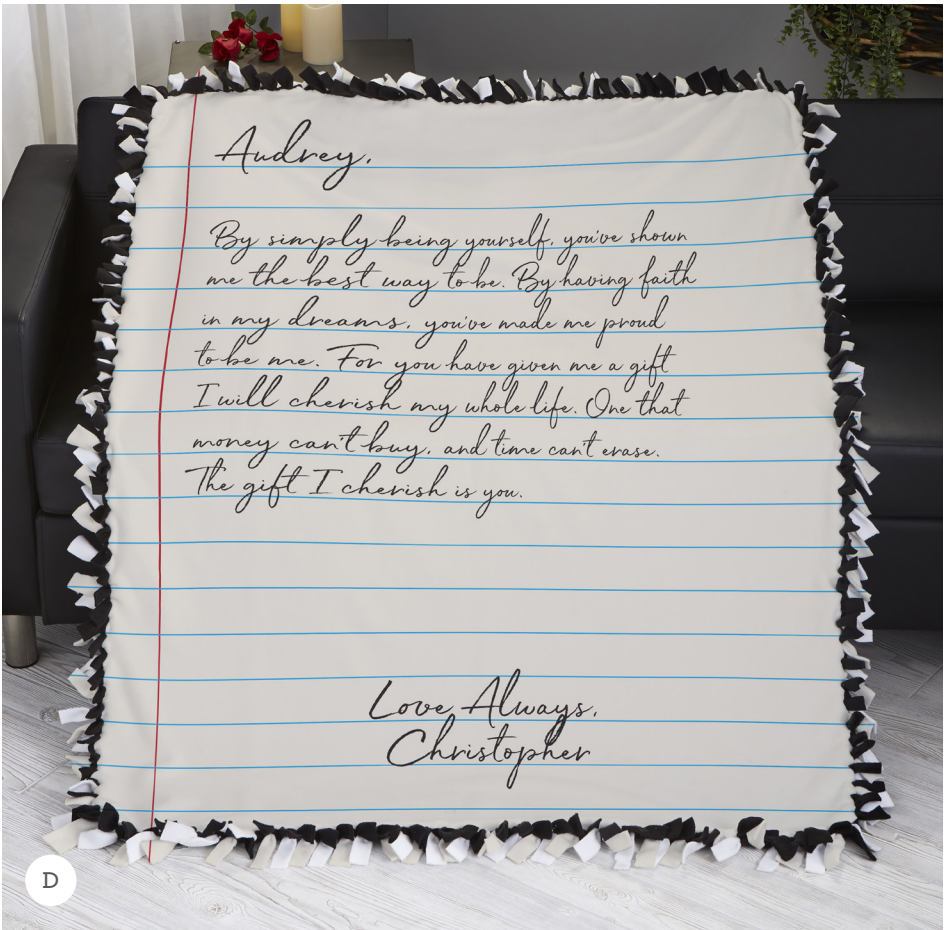 Audrey,
By simply being yourself, you've shown
me the best way to be. By having faith
in my dreams, you've made me proud
to be me. For you have given me a gift
I will cherish my whole life. One that
money can't buy, and time can't erase.
The gift I cherish is you.
Love Always,
Christopher
D